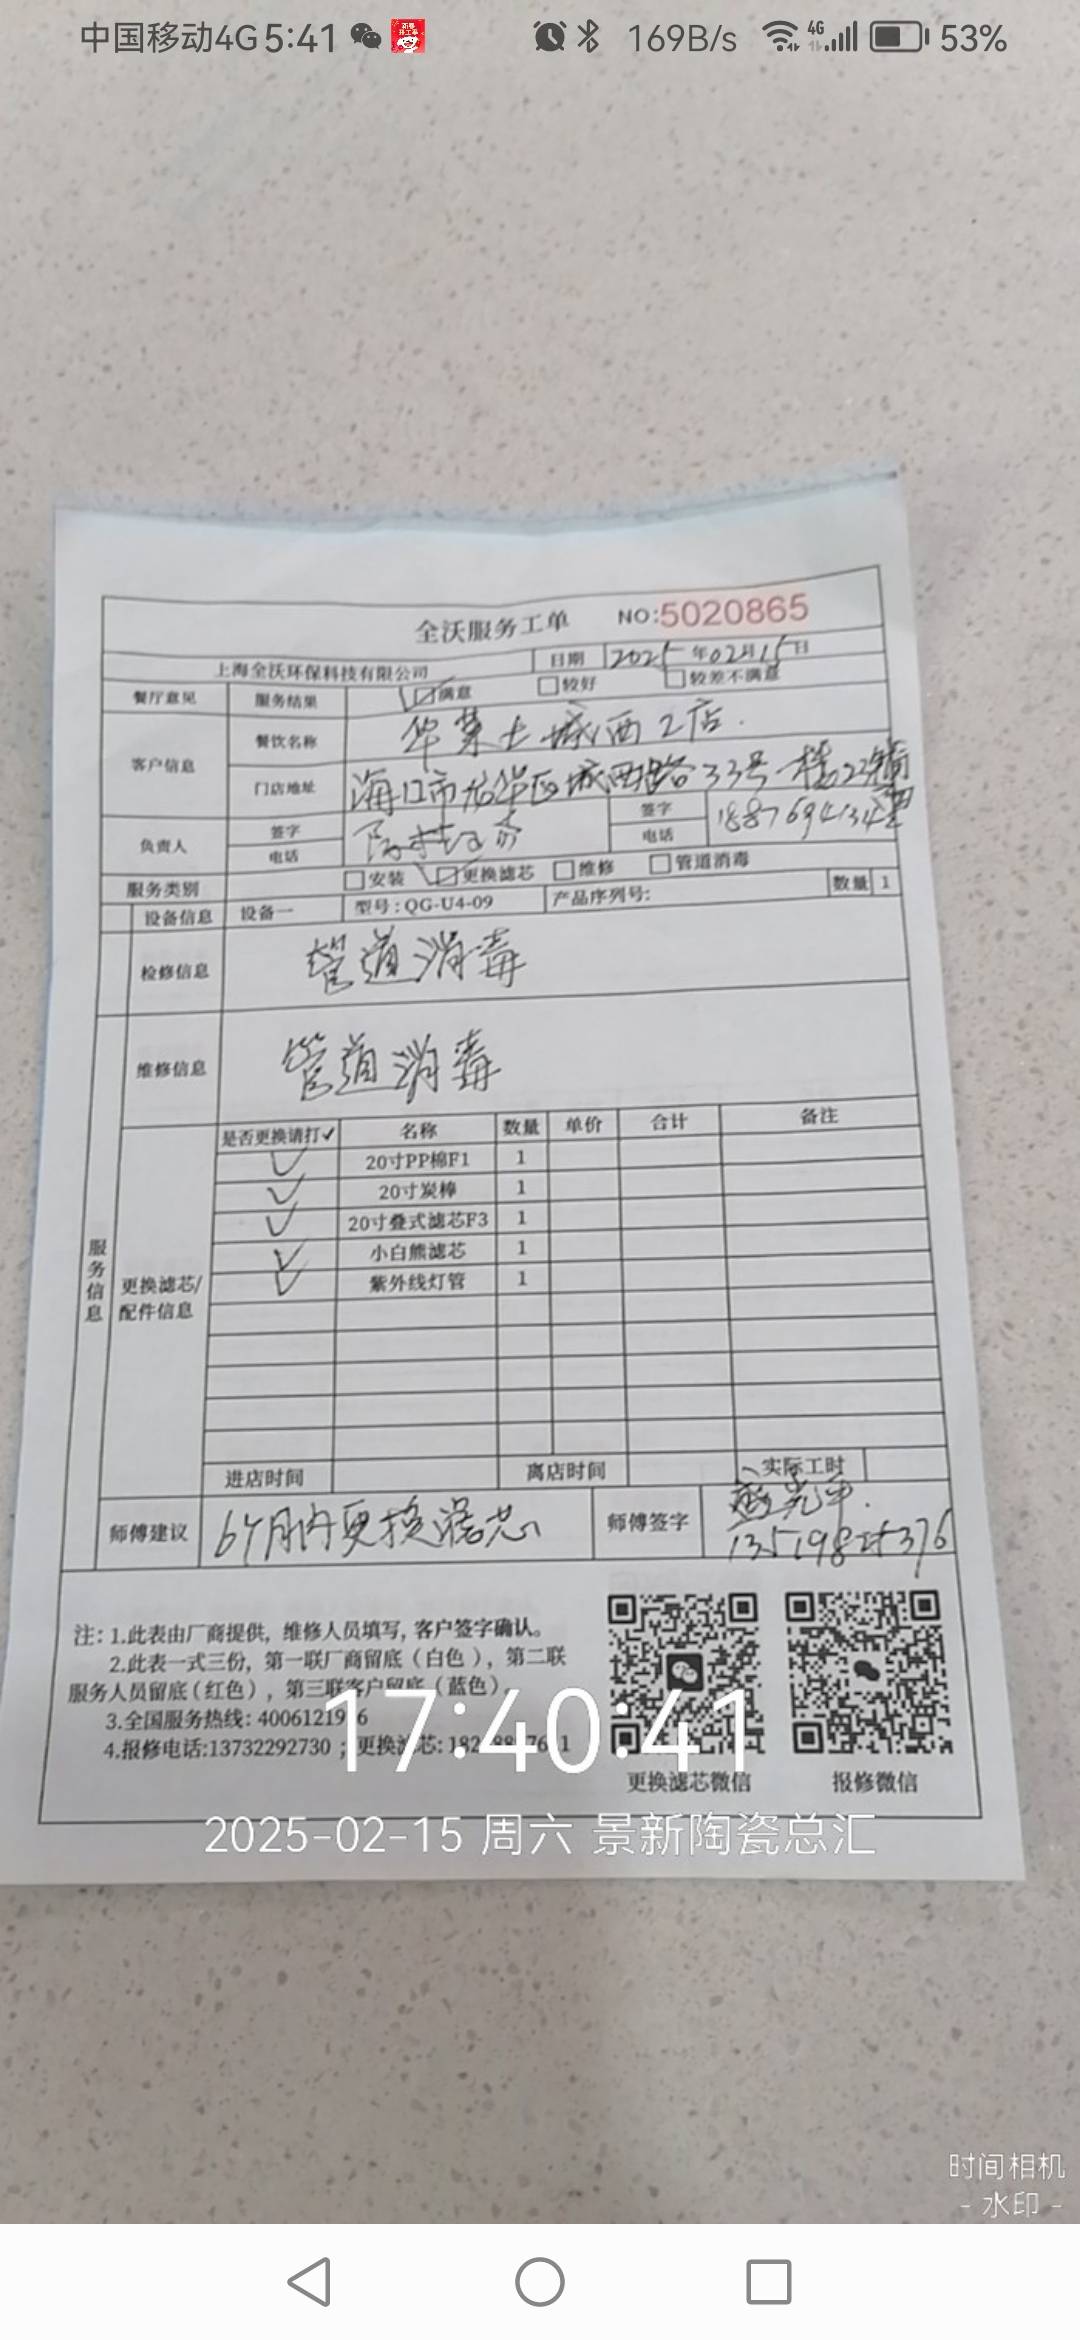 中国移动4G 5:41 169B/s 4G 53%
全沃服务工单 NO:5020865
上海全沃环保科技有限公司 日期 2025年02月15日
餐厅意见 服务结果 满意 较好 较差不满意
客户信息 餐饮名称 华莱士城西2店.
门店地址 海口市龙华区城西路33号一楼22铺
负责人 签字 签字
电话 电话
服务类别 安装 更换滤芯 维修 管道消毒
设备信息 设备一 型号:QG-U4-09 产品序列号: 数量 1
检修信息 管道消毒
维修信息 管道消毒
服务信息
更换滤芯/配件信息
是否更换请打✓ 名称 数量 单价 合计 备注
✓ 20寸PP棉F1 1
✓ 20寸炭棒 1
✓ 20寸叠式滤芯F3 1
✓ 小白熊滤芯 1
✓ 紫外线灯管 1
进店时间 离店时间 实际工时
师傅建议 6个月内更换滤芯 师傅签字
注: 1.此表由厂商提供, 维修人员填写, 客户签字确认。
2.此表一式三份, 第一联厂商留底(白色), 第二联
服务人员留底(红色), 第三联客户留底(蓝色)
3.全国服务热线:
4.报修电话:13732292730 ; 更换滤芯:
更换滤芯微信 报修微信
17:40:41
2025-02-15 周六 景新陶瓷总汇
时间相机
- 水印 -